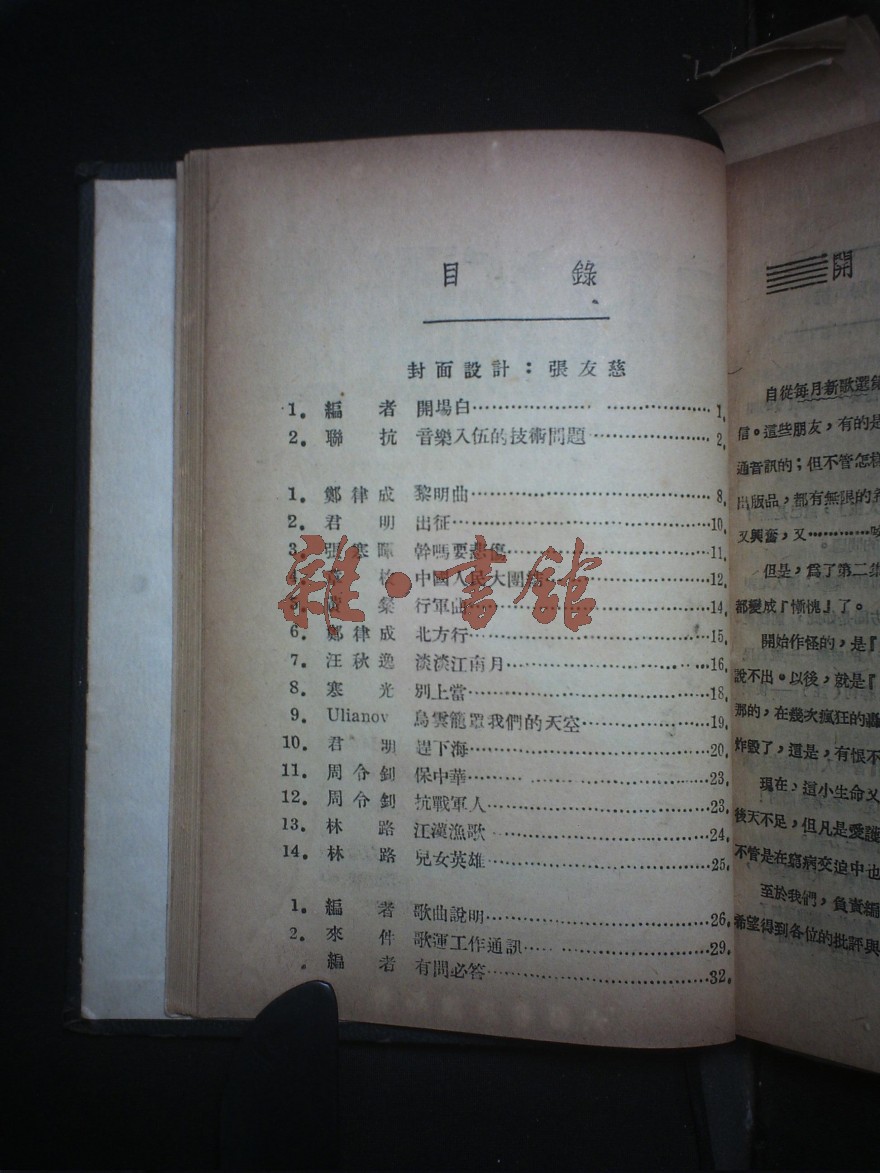 目錄
封面設計：張友慈
1. 編者 開場白……………………1.
2. 聯抗 音樂入伍的技術問題……………2.
1. 鄭律成 黎明曲……………………8.
2. 君明 出征……………………10.
3. 張寒暉 幹嗎要悲傷……………………11.
4. 中國人民大團結……………………12.
5. 行軍曲……………………14.
6. 鄭律成 北方行……………………15.
7. 汪秋逸 淡淡江南月……………………16.
8. 寒光 別上當……………………18.
9. Ulianov 烏雲籠罩我們的天空……………19.
10. 君明 趕下海……………………20.
11. 周令釗 保中華……………………23.
12. 周令釗 抗戰軍人……………………23.
13. 林路 江漢漁歌……………………24.
14. 林路 兒女英雄……………………25.
1. 編者 歌曲說明……………………26.
2. 來件 歌運工作通訊……………………29.
. 編者 有問必答……………………32.
雜·書館
開
自從每月新歌選集
信。這些朋友，有的是
通音訊的；但不管怎樣
出版品，都有無限的
又興奮，又…………
但是，爲了第二集
都變成『慚愧』了。
開始作怪的，是『
說不出。以後，就是『
那的，在幾次瘋狂的轟
炸毀了，這是，有恨不
現在，這小生命又
後天不足，但凡是愛護
不管是在窮病交迫中也
至於我們，負責編
希望得到各位的批評與